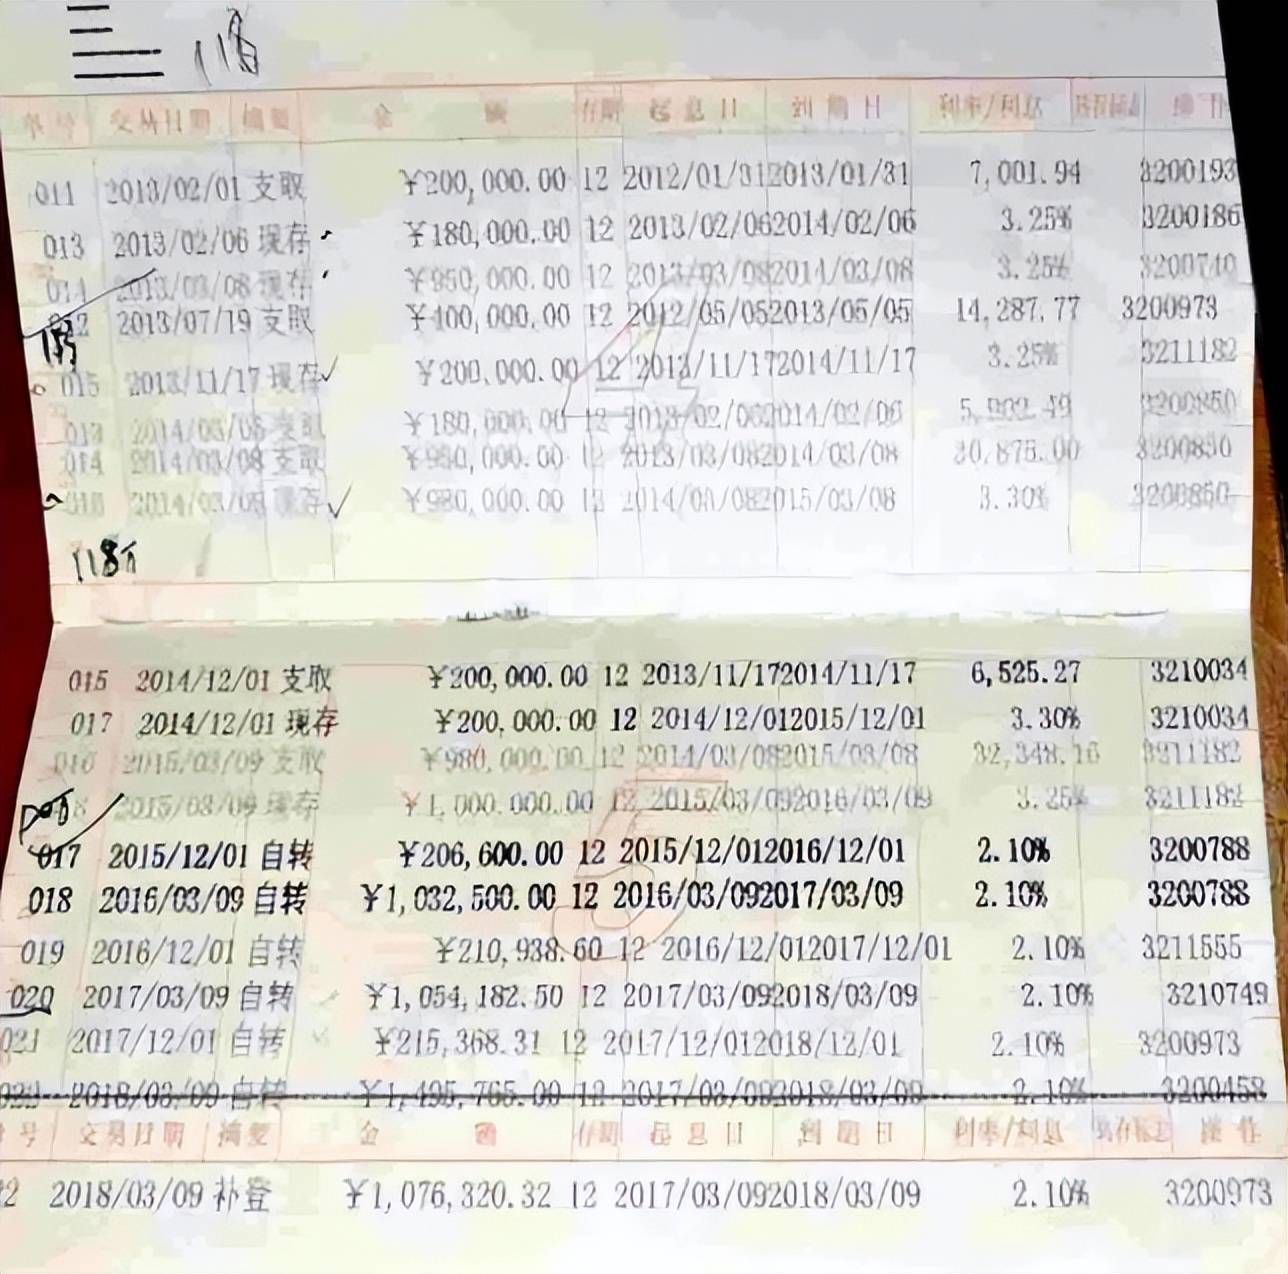 118
交易日期 摘要 金 额 存期 起息日 到期日 利率/利息 操作
011 2013/02/01 支取 ¥200,000.00 12 2012/01/31 2013/01/31 7,001.94 3200193
013 2013/02/06 现存 ¥180,000.00 12 2013/02/06 2014/02/06 3.25% 3200186
014 2013/03/08 现存 ¥950,000.00 12 2013/03/08 2014/03/08 3.25% 3200740
012 2013/07/19 支取 ¥400,000.00 12 2012/05/05 2013/05/05 14,287.77 3200973
015 2013/11/17 现存 ¥200,000.00 12 2013/11/17 2014/11/17 3.25% 3211182
013 2014/03/08 支取 ¥180,000.00 12 2013/02/06 2014/02/06 3200850
014 2014/03/08 支取 ¥950,000.00 12 2013/03/08 2014/03/08 30,875.00 3200850
016 2014/03/08 现存 ¥980,000.00 12 2014/03/08 2015/03/08 3.30% 3200850
118万
015 2014/12/01 支取 ¥200,000.00 12 2013/11/17 2014/11/17 6,525.27 3210034
017 2014/12/01 现存 ¥200,000.00 12 2014/12/01 2015/12/01 3.30% 3210034
016 2015/03/09 支取 ¥980,000.00 12 2014/03/08 2015/03/08 32,348.16 3211182
2015/03/09 现存 ¥1,000,000.00 12 2015/03/09 2016/03/09 3.25% 3211182
017 2015/12/01 自转 ¥206,600.00 12 2015/12/01 2016/12/01 2.10% 3200788
018 2016/03/09 自转 ¥1,032,500.00 12 2016/03/09 2017/03/09 2.10% 3200788
019 2016/12/01 自转 ¥210,938.60 12 2016/12/01 2017/12/01 2.10% 3211555
020 2017/03/09 自转 ¥1,054,182.50 12 2017/03/09 2018/03/09 2.10% 3210749
021 2017/12/01 自转 ¥215,368.31 12 2017/12/01 2018/12/01 2.10% 3200973
2018/03/09 自转 ¥1,495,765.00 12 2017/03/09 2018/03/09 2.10% 3200458
号 交易日期 摘要 金 额 存期 起息日 到期日 利率/利息 操作
2 2018/03/09 补登 ¥1,076,320.32 12 2017/03/09 2018/03/09 2.10% 3200973